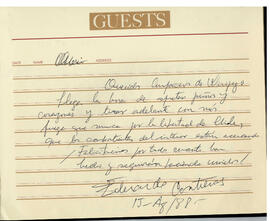 GUESTS
DATE NAME ADDRESS
Queridos compañeros de
llega la hora de apretar puños y
corazones y tirar adelante con más
fuerza que nunca por la libertad de Chile,
que los combatientes del interior están
Felicitaciones por todo cuanto han
hecho y seguirán haciendo
Eduardo Contreras
15-Ag/88-